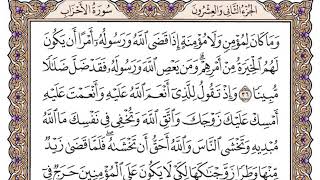 الجزء الثاني والعشرون
سورة الأحزاب
وَمَا كَانَ لِمُؤْمِنٍ وَلَا مُؤْمِنَةٍ إِذَا قَضَى ٱللَّهُ وَرَسُولُهُۥٓ أَمْرًا أَن يَكُونَ
لَهُمُ ٱلْخِيَرَةُ مِنْ أَمْرِهِمْ ۗ وَمَن يَعْصِ ٱللَّهَ وَرَسُولَهُۥ فَقَدْ ضَلَّ ضَلَٰلًا
مُّبِينًا ٣٦ وَإِذْ تَقُولُ لِلَّذِىٓ أَنْعَمَ ٱللَّهُ عَلَيْهِ وَأَنْعَمْتَ عَلَيْهِ
أَمْسِكْ عَلَيْكَ زَوْجَكَ وَٱتَّقِ ٱللَّهَ وَتُخْفِى فِى نَفْسِكَ مَا ٱللَّهُ
مُبْدِيهِ وَتَخْشَى ٱلنَّاسَ وَٱللَّهُ أَحَقُّ أَن تَخْشَىٰهُ ۖ فَلَمَّا قَضَىٰ زَيْدٌ
مِّنْهَا وَطَرًا زَوَّجْنَٰكَهَا لِكَىْ لَا يَكُونَ عَلَى ٱلْمُؤْمِنِينَ حَرَجٌ فِىٓ